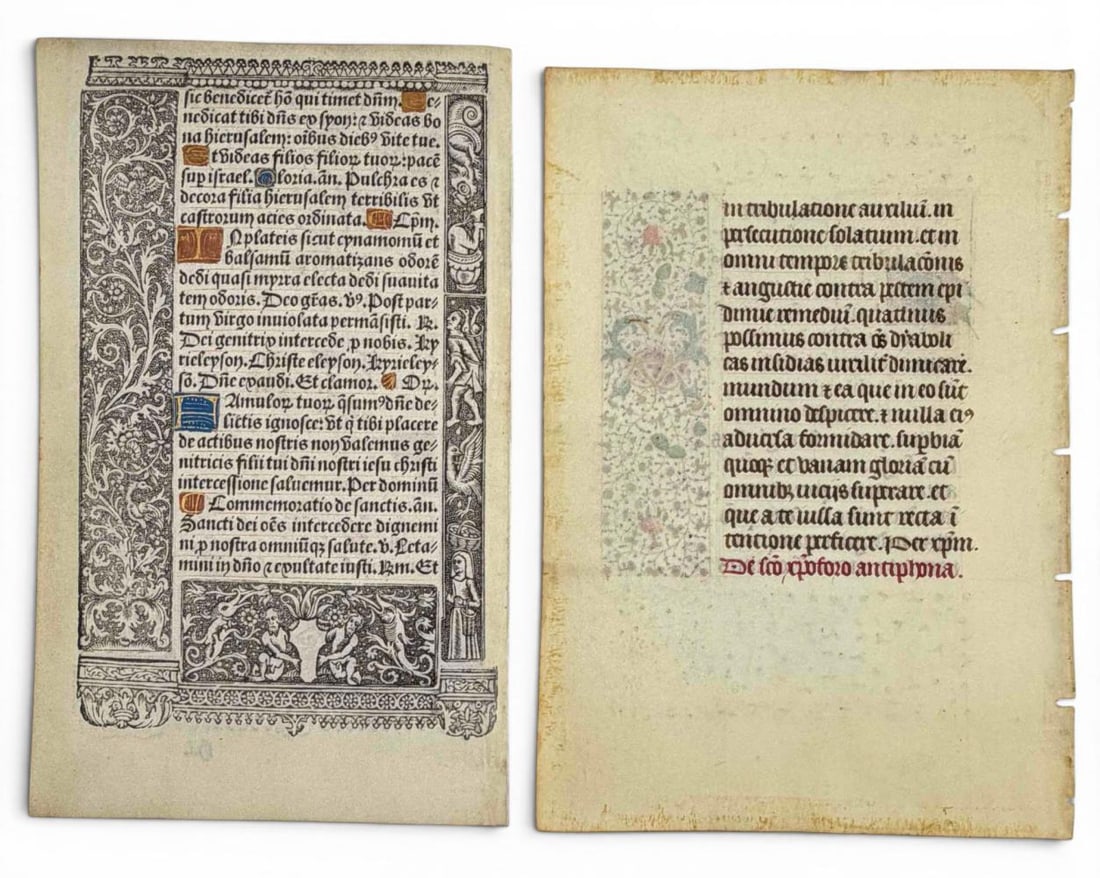 sic benedicet̃ hõ qui timet dñm. Be-
nedicat tibi dñs ex syon: ⁊ videas bo
na hierusalem: oĩbus dieb⁹ vite tue.
Et videas filios filioꝝ tuoꝝ: pacẽ
sup̱ israel. Gloria. añ. Pulchra es ⁊
decora filia hierusalem terribilis vt
castrorum acies ordinata. Cpm̃.
IN plateis sicut cynamomũ et
balsamũ aromatizans odorẽ
dedi quasi myrra electa dedi suavita
tem odoris. Deo gr̃as. v⁹. Post par-
tum virgo inviolata permãsisti. ꝶ.
Dei genitrix intercede p̱ nobis. ky
rieleyson. Christe eleyson. kyrieley-
sõ. Dñe exaudi. Et clamor. Or̃.
FAmuloꝝ tuoꝝ q̃sum⁹ dñe de-
lictis ignosce: vt q̃ tibi placere
de actibus nostris non valemus ge-
nitricis filii tui dñi nostri iesu christi
intercessione saluemur. Per dominũ
Commemoratio de sanctis. añ.
Sancti dei oẽs intercedere dignemi
ni p̱ nostra omniũqꝫ salute. v. Leta-
mini in dño ⁊ exultate iusti. ꝶm. Et
in tribulatione auxiliũ. in
persecutione solatium. et in
omni tempore tribulacõnis
⁊ angustie contra pestem epi
dimie remediũ. quatinus
possimus contra õs dyaboli
cas insidias virilit̃ dimicare.
mundum ⁊ ea que in eo sũt
omnino despicere. ⁊ nulla ei⁹
adversa formidare. suꝑbiã
quoqꝫ et vanam gloriã cũ
omnibꝫ viciis superare. et
que a te iussa sunt recta ĩ
tencione perficere. Per xp̃m.
De sc̃o xp̃oforo antiphona.